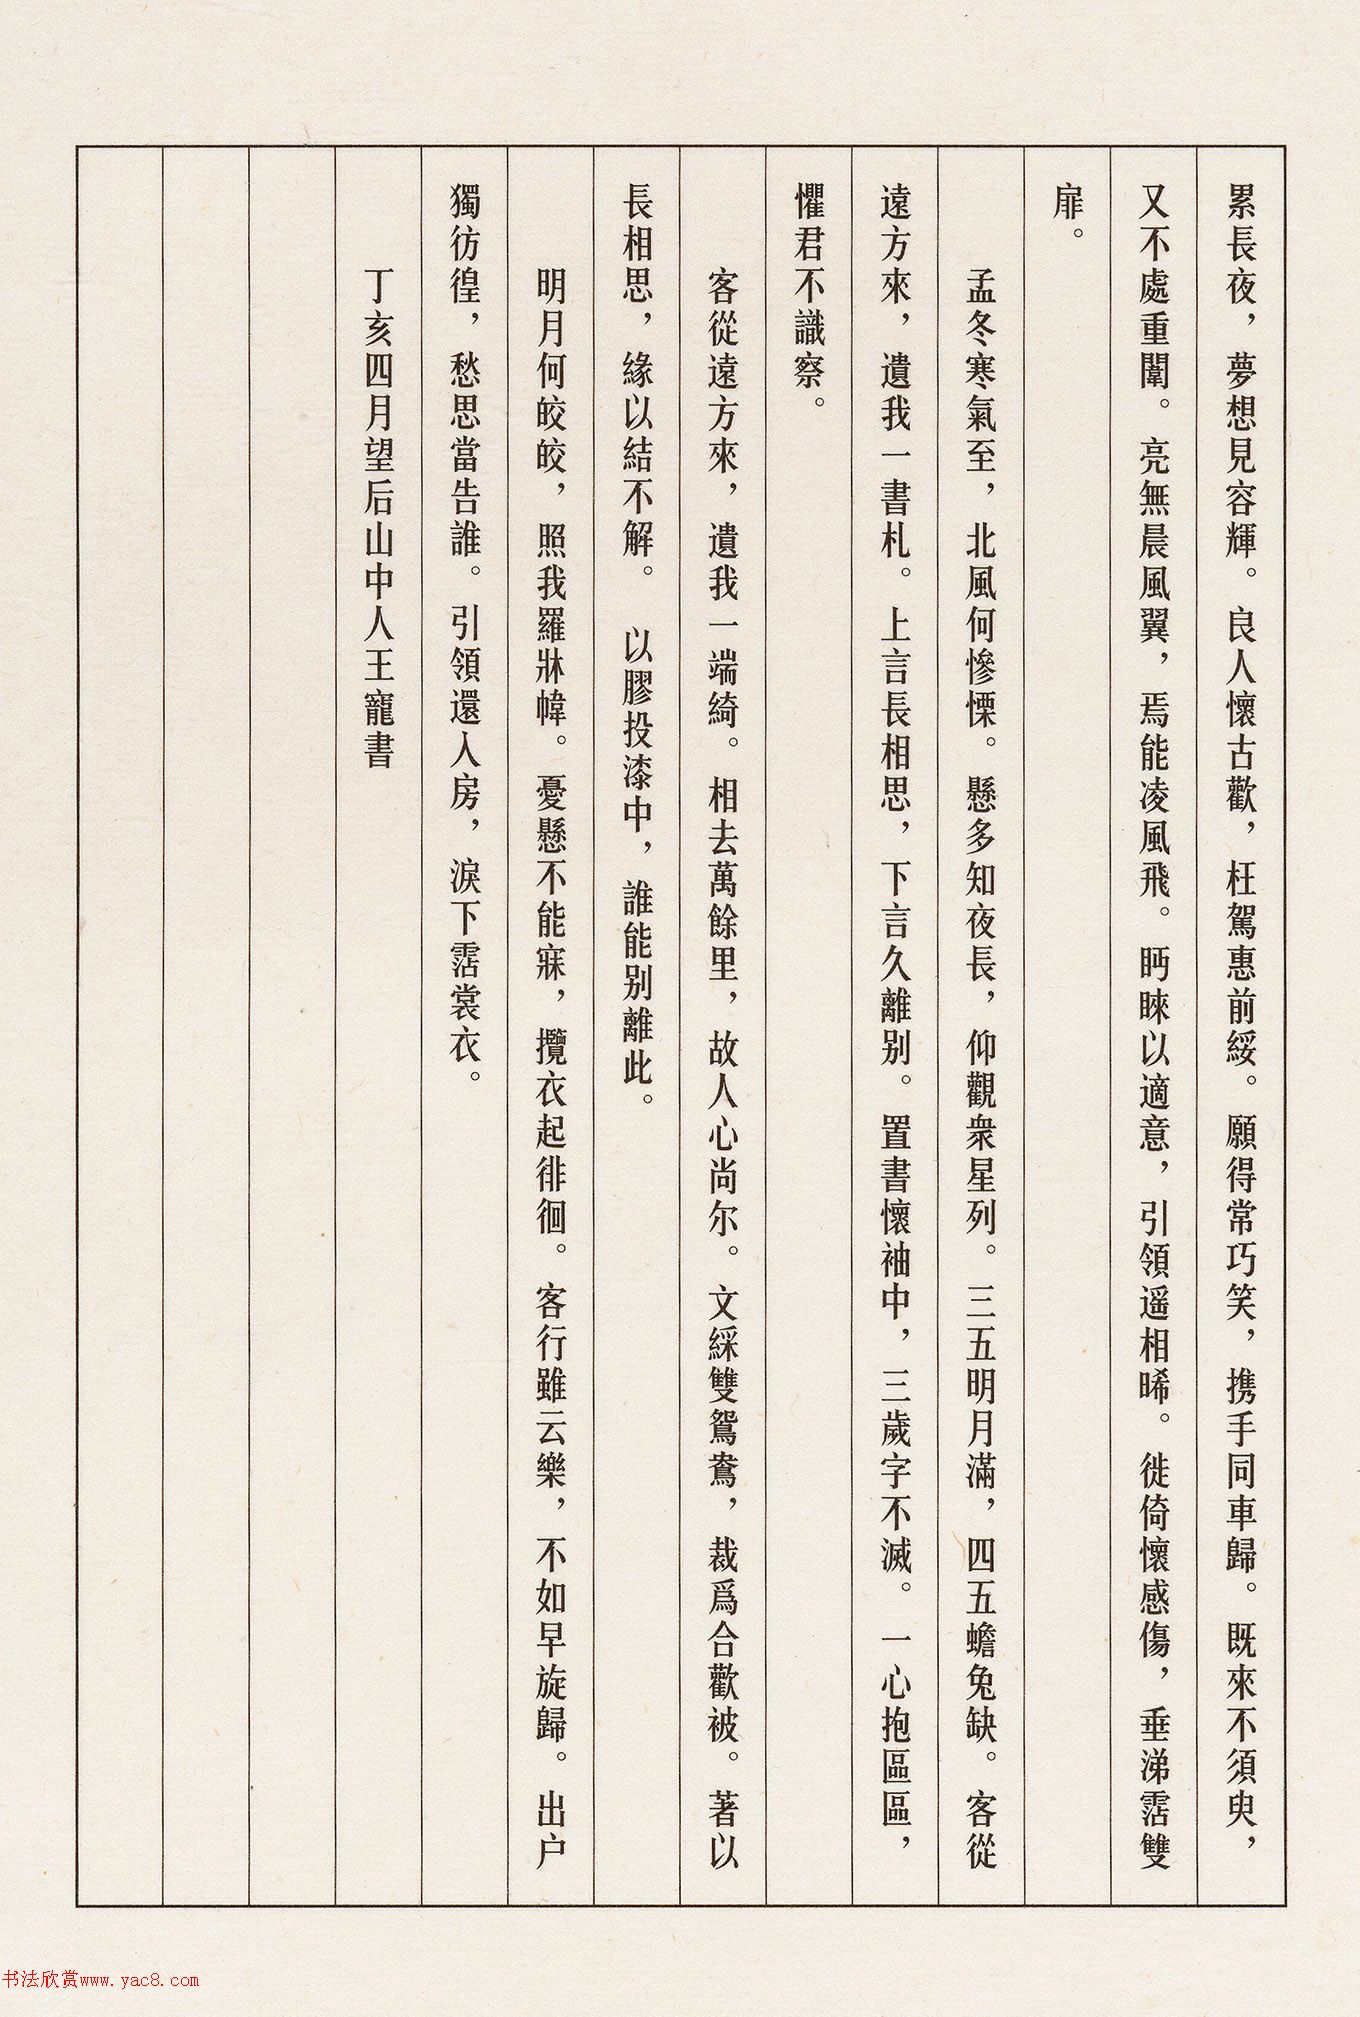 累長夜，夢想見容輝。良人懷古歡，枉駕惠前綏。願得常巧笑，携手同車歸。既來不須臾，
又不處重闈。亮無晨風翼，焉能凌風飛。眄睞以適意，引領遥相晞。徙倚懷感傷，垂涕霑雙
扉。
孟冬寒氣至，北風何慘慄。懸多知夜長，仰觀衆星列。三五明月滿，四五蟾兔缺。客從
遠方來，遺我一書札。上言長相思，下言久離别。置書懷袖中，三歲字不滅。一心抱區區，
懼君不識察。
客從遠方來，遺我一端綺。相去萬餘里，故人心尚尔。文綵雙鴛鴦，裁爲合歡被。著以
長相思，緣以結不解。以膠投漆中，誰能别離此。
明月何皎皎，照我羅牀幃。憂懸不能寐，攬衣起徘徊。客行雖云樂，不如早旋歸。出户
獨彷徨，愁思當告誰。引領還入房，淚下霑裳衣。
丁亥四月望后山中人王寵書
书法欣赏www.yac8.com